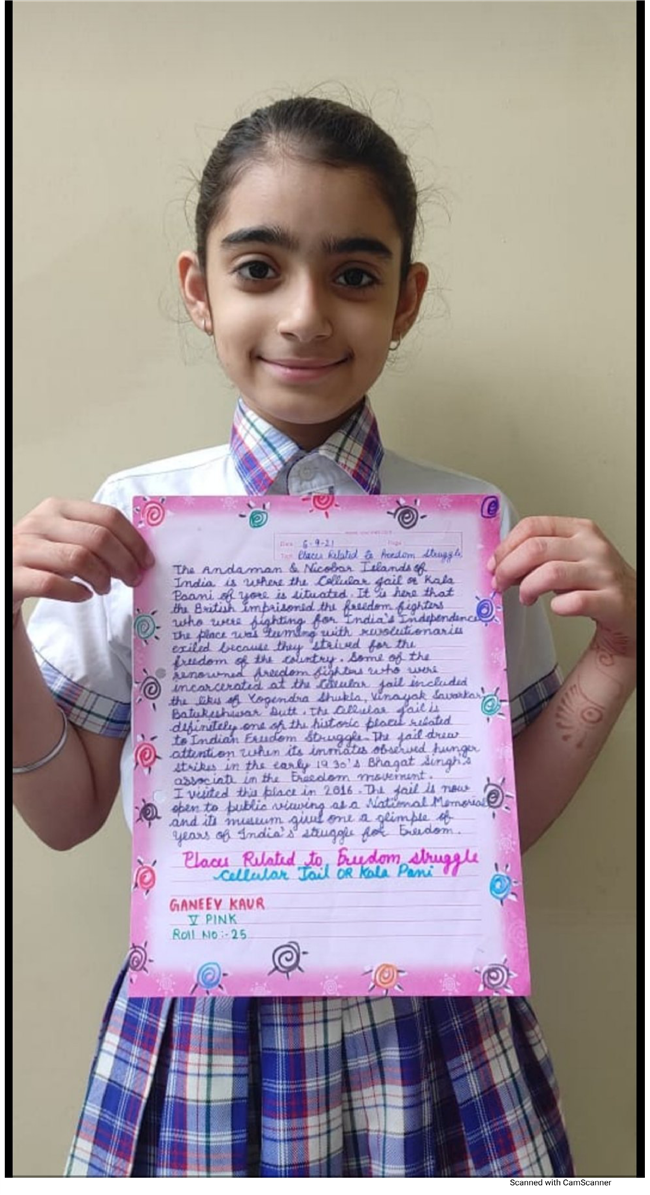 Date 6-9-21 Page
Topic Places Related to freedom struggle
The Andaman & Nicobar Islands of
India is where the Cellular jail or Kala
Paani of yore is situated. It is here that
the British imprisoned the freedom fighters
who were fighting for India's Independence
The place was teeming with revolutionaries
exiled because they strived for the
freedom of the country. Some of the
renowned freedom fighters who were
incarcerated at the Cellular jail included
the likes of Yogendra Shukla, Vinayak Savarkar
Batukeshwar Dutt. The Cellular jail is
definitely one of the historic places related
to Indian Freedom Struggle. The jail drew
attention when its inmates observed hunger
strikes in the early 1930's Bhagat Singh's
associate in the Freedom movement.
I visited this place in 2016. The jail is now
open to public viewing as a National Memorial
and its museum gives one a glimpse of
years of India's struggle for Freedom.
Places Related to Freedom struggle
Cellular Jail OR Kala Pani
GANEEV KAUR
V PINK
Roll No:-25
Scanned with CamScanner